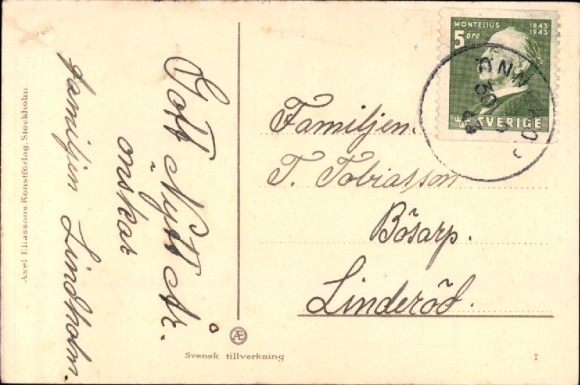 Gott Nytt År.
önskar
familjen Lindholm.
Axel Eliassons Konstförlag, Stockholm
Æ
Svensk tillverkning
I
MONTELIUS 1843 1943
5 öre
SVERIGE
Familjen.
T. Tobiasson
Bösarp.
Linderöd.